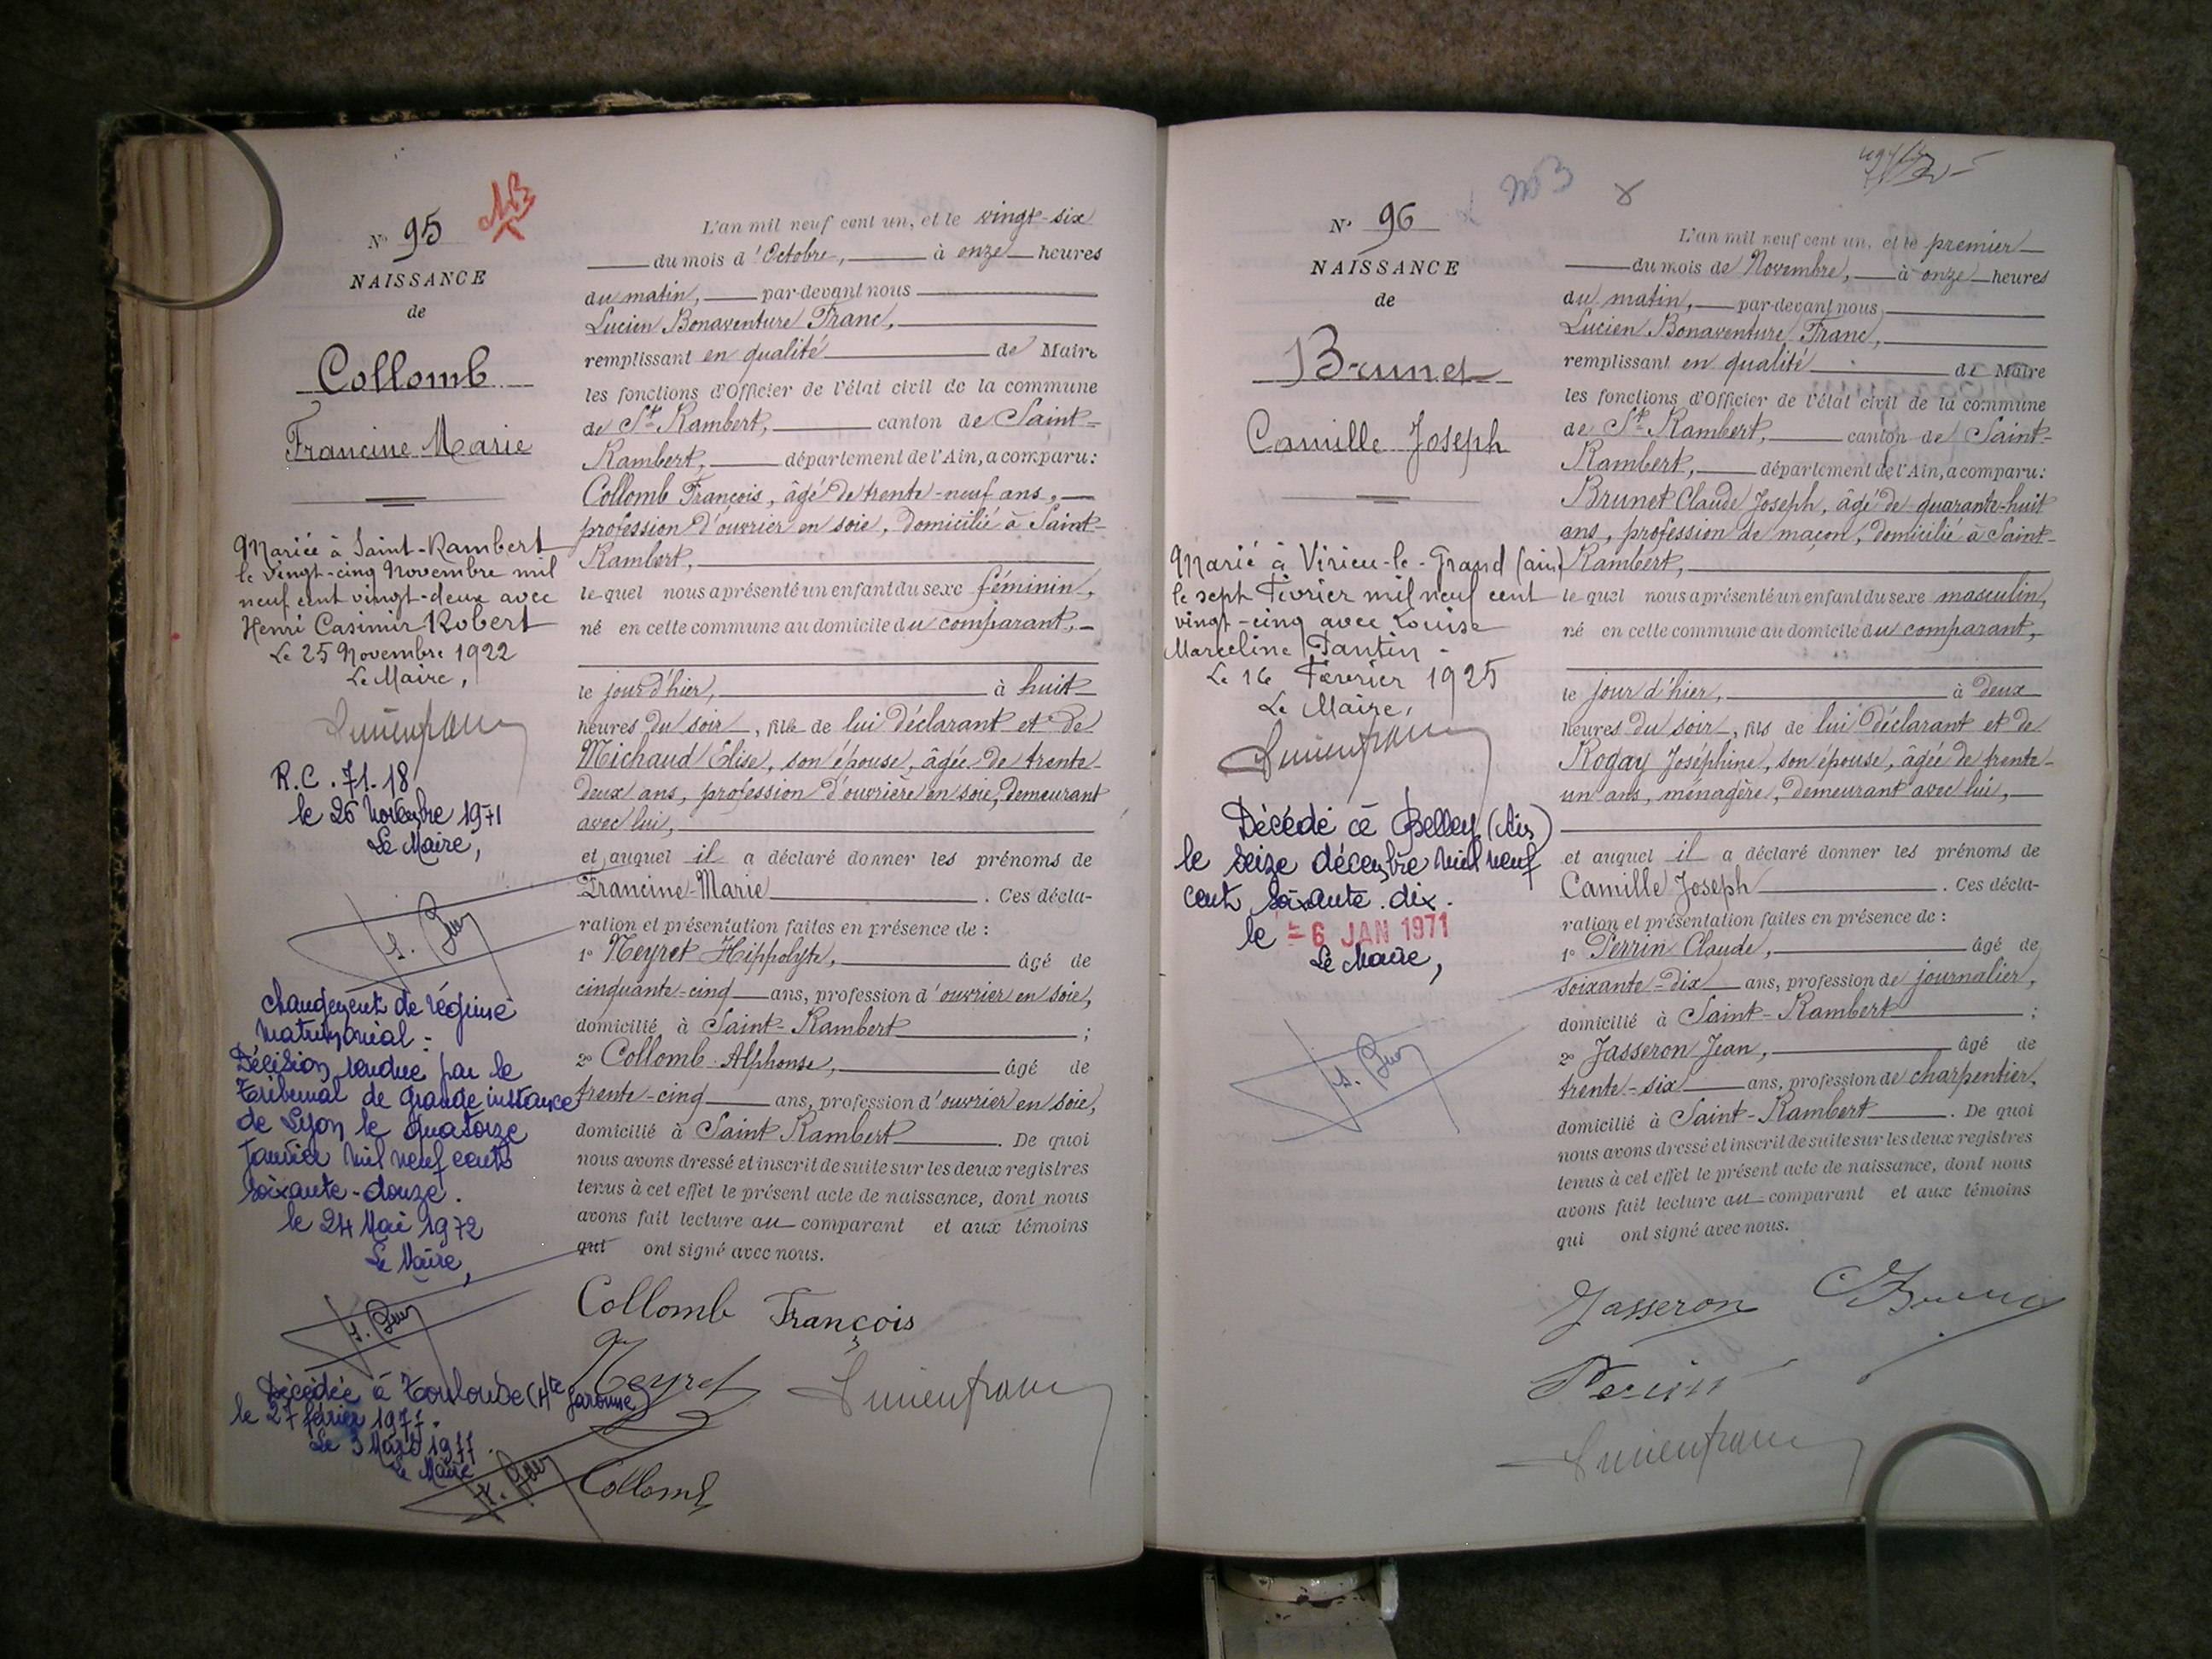 N° 95
NAISSANCE
de
Collomb
Francine Marie
Mariée à Saint-Rambert
le vingt-cinq Novembre mil
neuf cent vingt-deux avec
Henri Casimir Robert
Le 25 Novembre 1922
Le Maire,
R.C. 71-18
le 26 Novembre 1971
Le Maire,
Changement de régime
matrimonial :
Décision rendue par le
Tribunal de Grande instance
de Lyon le quatorze
Janvier mil neuf cent
soixante-douze.
le 24 Mai 1972
Le Maire,
Décédée à Toulouse (Hte Garonne)
le 27 février 1977.
Le 3 Mars 1977.
Le Maire
L'an mil neuf cent un, et le vingt-six
du mois d'Octobre, à onze heures
du matin, par-devant nous
Lucien Bonaventure Franc,
remplissant en qualité de Maire
les fonctions d'Officier de l'état civil de la commune
de St Rambert, canton de Saint-
Rambert, département de l'Ain, a comparu :
Collomb François, âgé de trente-neuf ans,
profession d'ouvrier en soie, domicilié à Saint-
Rambert,
lequel nous a présenté un enfant du sexe féminin,
né en cette commune au domicile du comparant,
le jour d'hier, à huit
heures du soir, fille de lui déclarant et de
Michaud Elise, son épouse, âgée de trente-
deux ans, profession d'ouvrière en soie, demeurant
avec lui,
et auquel il a déclaré donner les prénoms de
Francine-Marie. Ces décla-
ration et présentation faites en présence de :
1° Neyret Hippolyte, âgé de
cinquante-cinq ans, profession d'ouvrier en soie,
domicilié à Saint-Rambert ;
2° Collomb Alphonse, âgé de
trente-cinq ans, profession d'ouvrier en soie,
domicilié à Saint Rambert. De quoi
nous avons dressé et inscrit de suite sur les deux registres
tenus à cet effet le présent acte de naissance, dont nous
avons fait lecture au comparant et aux témoins
qui ont signé avec nous.
Collomb François
Neyret
Collomb
N° 96
NAISSANCE
de
Brunet
Camille Joseph
Marié à Virieu-le-Grand (ain)
le sept Février mil neuf cent
vingt-cinq avec Louise
Marceline Tantin -
Le 16 Février 1925
Le Maire,
Décédé à Belley (Ain)
le seize décembre mil neuf
cent soixante-dix.
le - 6 JAN 1971
Le Maire,
L'an mil neuf cent un, et le premier
du mois de Novembre, à onze heures
du matin, par-devant nous
Lucien Bonaventure Franc,
remplissant en qualité de Maire
les fonctions d'Officier de l'état civil de la commune
de St Rambert, canton de Saint-
Rambert, département de l'Ain, a comparu :
Brunet Claude Joseph, âgé de quarante-huit
ans, profession de maçon, domicilié à Saint-
Rambert,
lequel nous a présenté un enfant du sexe masculin,
né en cette commune au domicile du comparant,
le jour d'hier, à deux
heures du soir, fils de lui déclarant et de
Rogay Joséphine, son épouse, âgée de trente-
un ans, ménagère, demeurant avec lui,
et auquel il a déclaré donner les prénoms de
Camille Joseph. Ces décla-
ration et présentation faites en présence de :
1° Perrin Claude, âgé de
soixante-dix ans, profession de journalier,
domicilié à Saint-Rambert ;
2° Jasseron Jean, âgé de
trente-six ans, profession de charpentier,
domicilié à Saint-Rambert. De quoi
nous avons dressé et inscrit de suite sur les deux registres
tenus à cet effet le présent acte de naissance, dont nous
avons fait lecture au comparant et aux témoins
qui ont signé avec nous.
Jasseron